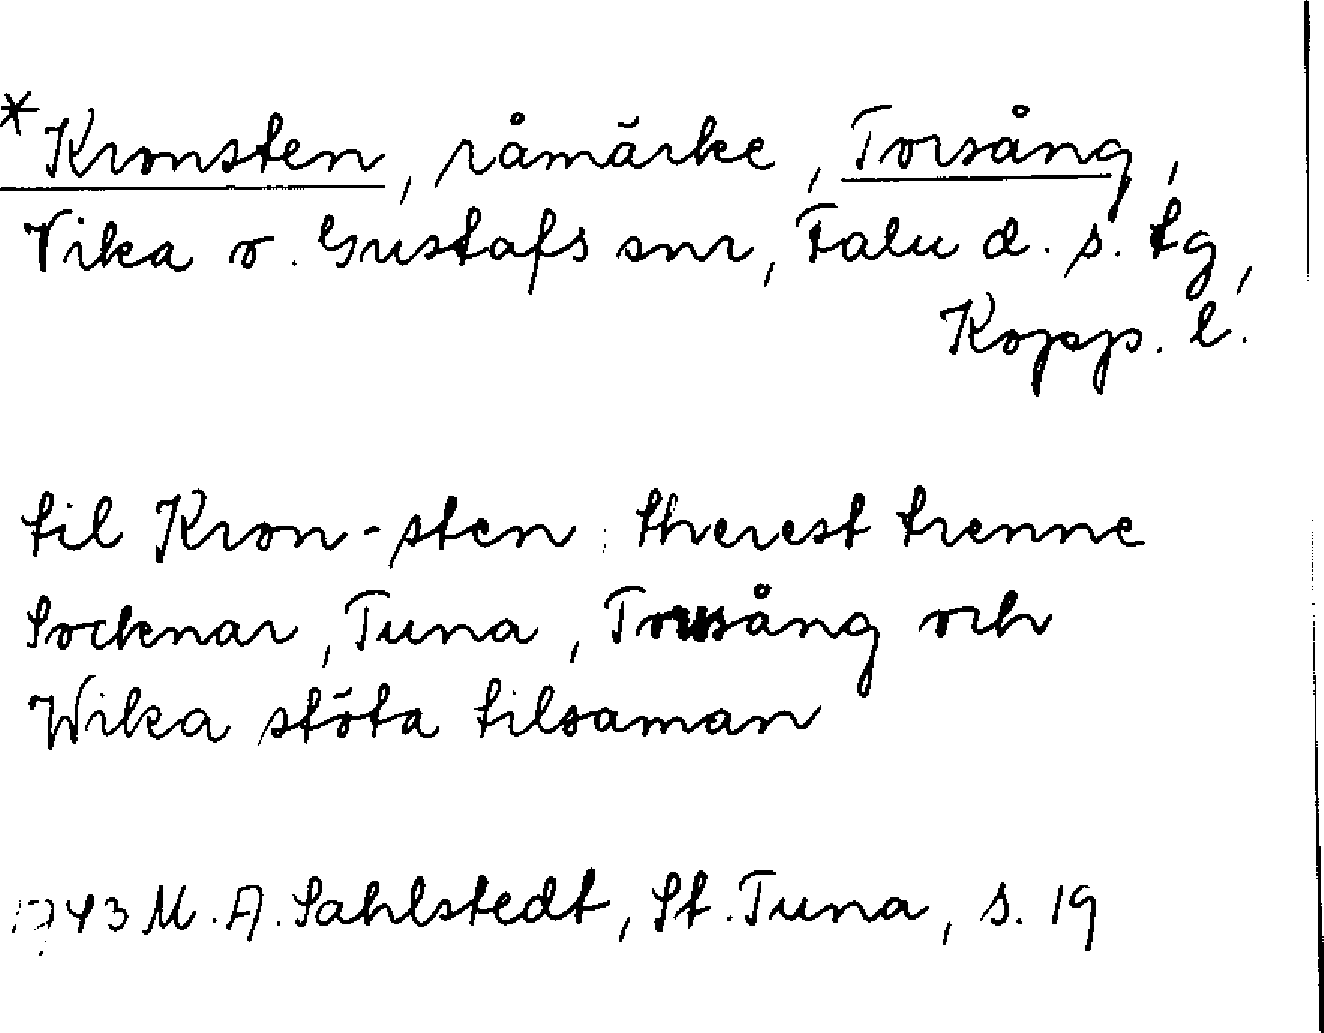 *Kronsten, råmärke, Torsång,
Vika o. Gustafs snr, Falu d. s. tg,
Kopp. l.
til Kron-sten: therest trenne
Socknar, Tuna, Torsång och
Wika stöta tilsaman
1743 M. A. Sahlstedt, St. Tuna, s. 19